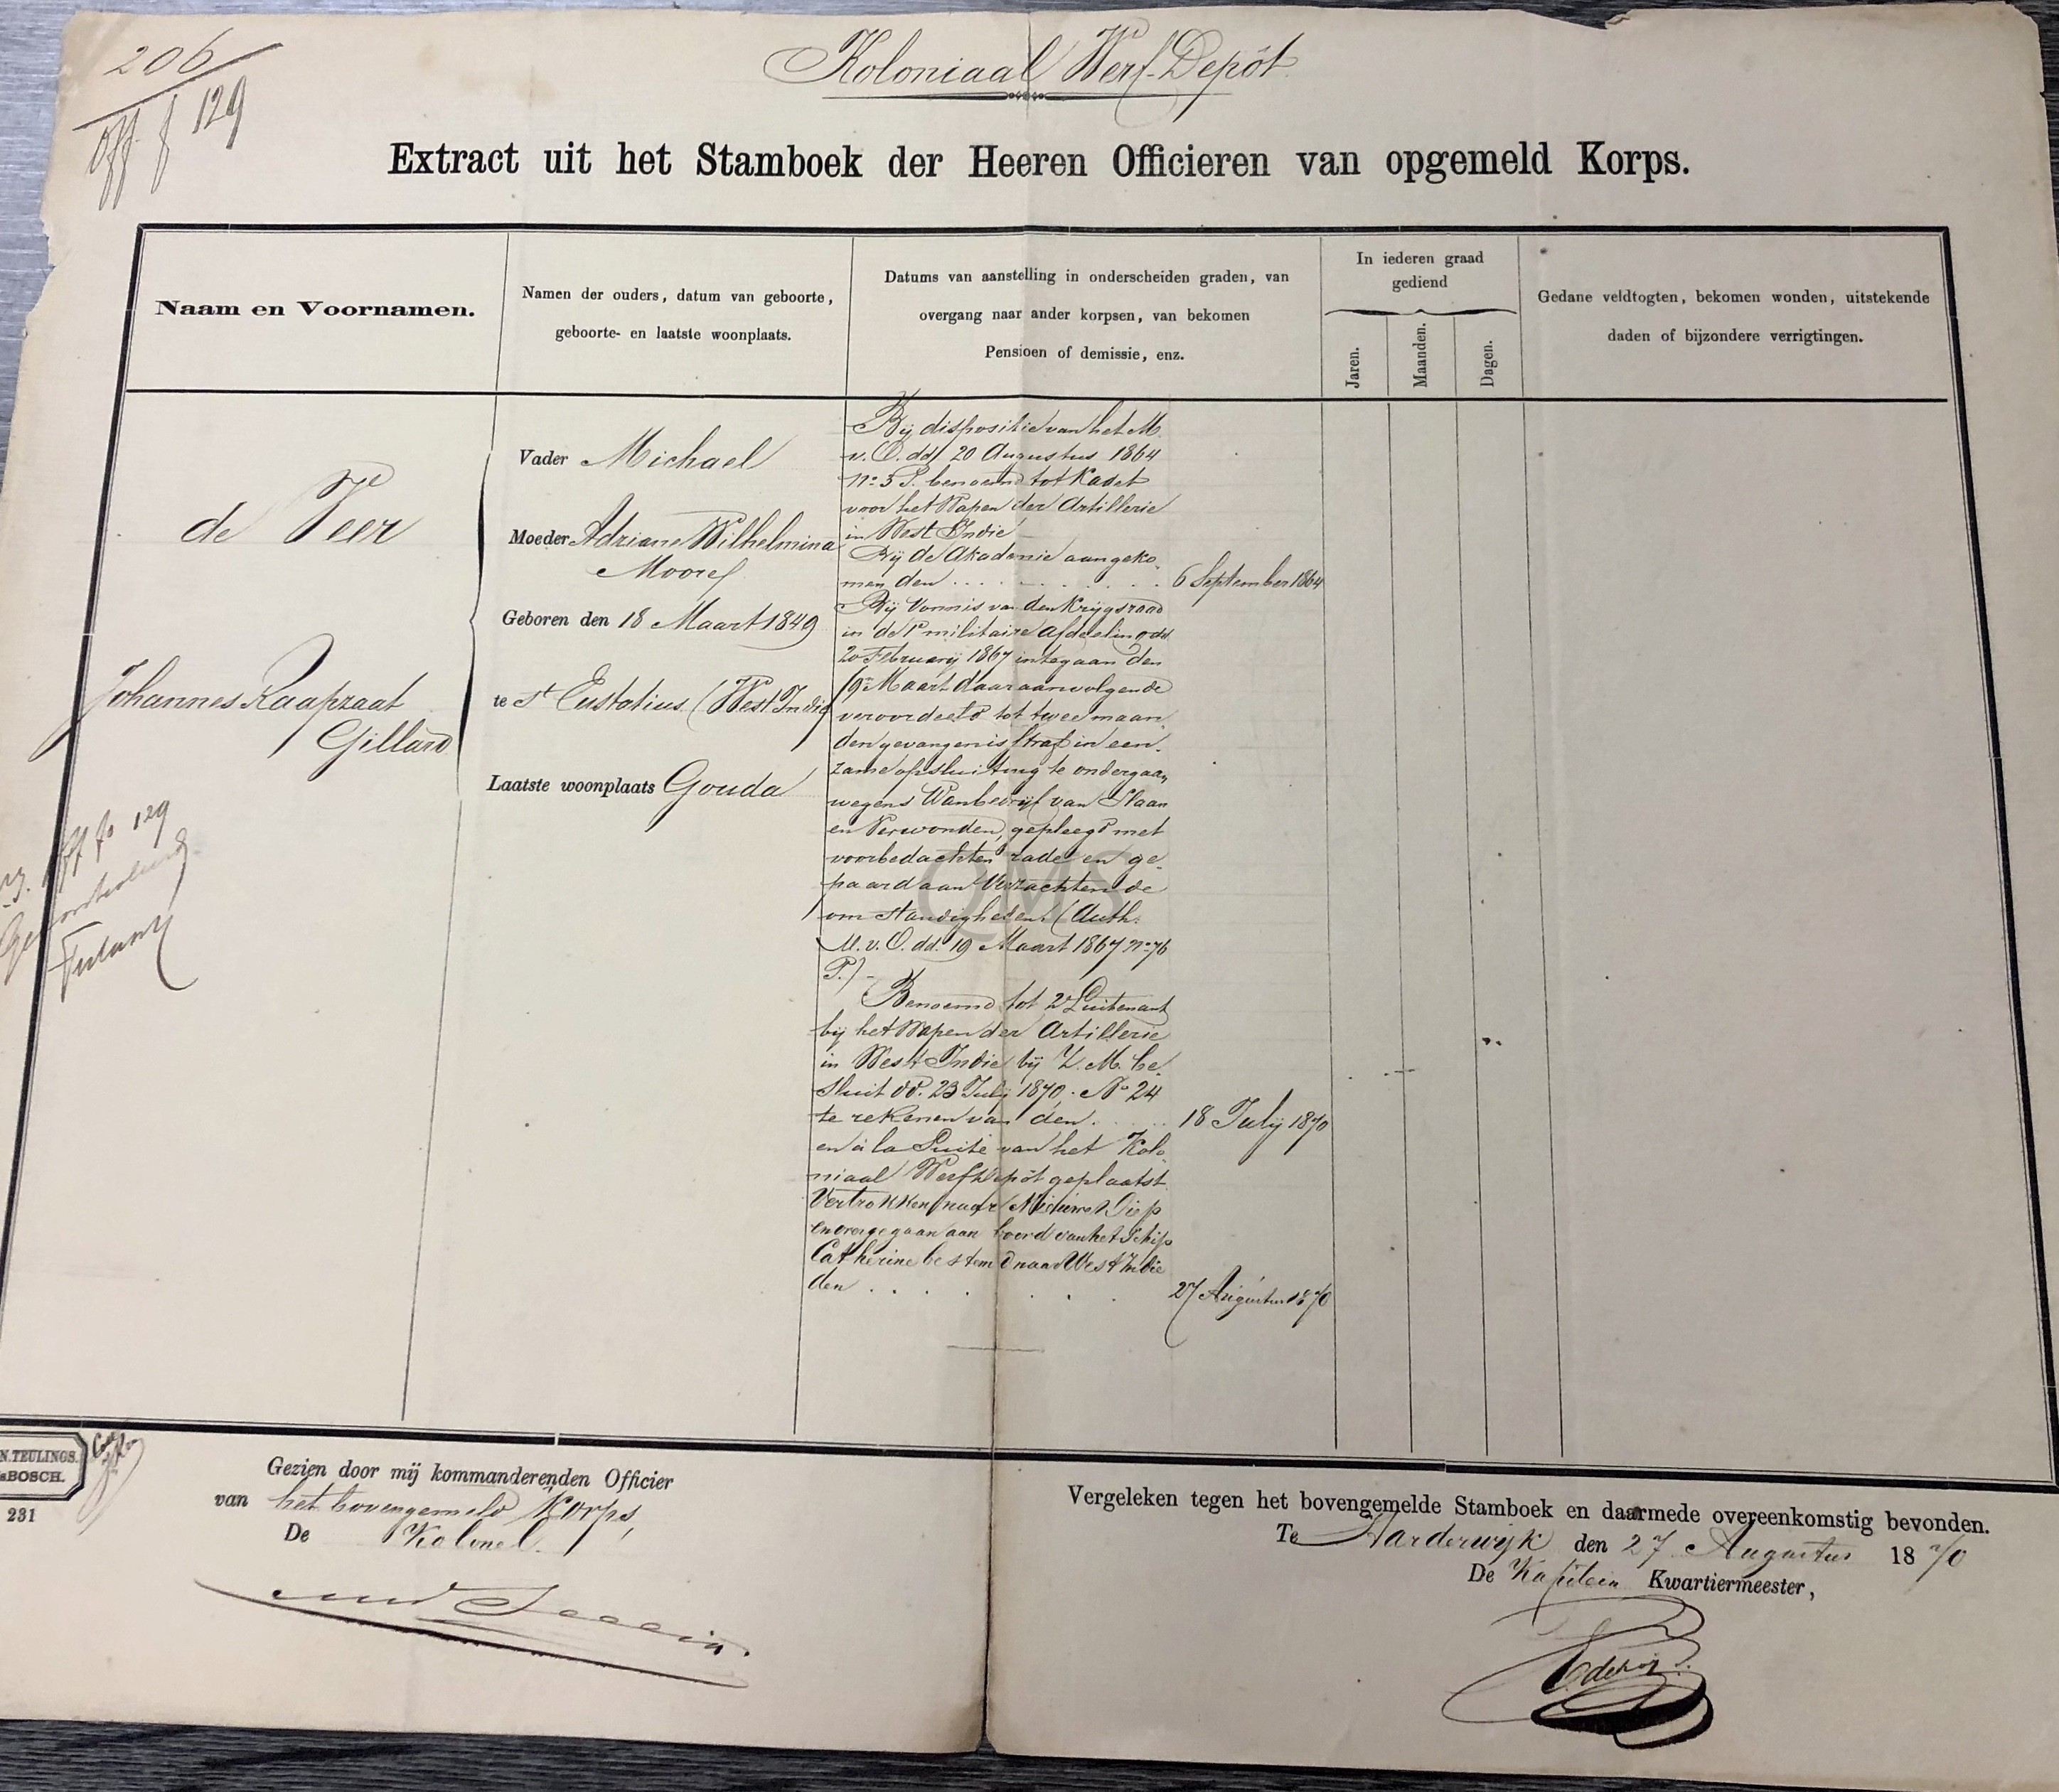 206
Off. f 129
Koloniaal Werf-Depôt
Extract uit het Stamboek der Heeren Officieren van opgemeld Korps.
Naam en Voornamen.
Namen der ouders, datum van geboorte,
geboorte- en laatste woonplaats.
Datums van aanstelling in onderscheiden graden, van
overgang naar ander korpsen, van bekomen
Pensioen of demissie, enz.
In iederen graad
gediend
Jaren.
Maanden.
Dagen.
Gedane veldtogten, bekomen wonden, uitstekende
daden of bijzondere verrigtingen.
de Veer
Johannes Raapzaat
Gillard
Vader Michael
Moeder Adriane Wilhelmina
Moore
Geboren den 18 Maart 1849
te St Eustatius (West Indie)
Laatste woonplaats Gouda
Bij dispositie van het M.
v. O. dd. 20 Augustus 1864
No 5 P. benoemd tot Kadet
voor het Wapen der Artillerie
in West Indie
Bij de Akademie aangeko-
men den . . . . 6 September 1864
Bij Vonnis van den Krijgsraad
in de 1e militaire afdeeling dd
20 February 1867 integaan den
19en Maart daaraanvolgende
veroordeeld tot twee maan-
den gevangenisstraf in een-
zame opsluiting te ondergaan
wegens Wanbedrijf van Slaan
en Verwonden, gepleegd met
voorbedachten rade en ge-
paard aan Verzachtende
omstandigheden (Auth:
M.v.O. dd. 19 Maart 1867 No 76
P.) -
Benoemd tot 2e Luitenant
bij het Wapen der Artillerie
in West Indie bij Z.M. be-
sluit dd. 23 July 1870. No 24
te rekenen van den . . . . 18 Julij 1870
en à la Suite van het Kolo-
niaal Werfdepôt geplaatst.
Vertrokken naar Nieuwe Diep
en overgegaan aan boord van het Schip
Catherine bestemd naar West Indie
den . . . . . 27 Augustus 1870
129
QMS
N. TEULINGS.
sBOSCH.
231
Gezien door mij kommanderenden Officier
van het bovengemeld Korps,
De Kolonel.
Vergeleken tegen het bovengemelde Stamboek en daarmede overeenkomstig bevonden.
Te Harderwijk den 27 Augustus 1870
De Kapitein Kwartiermeester,